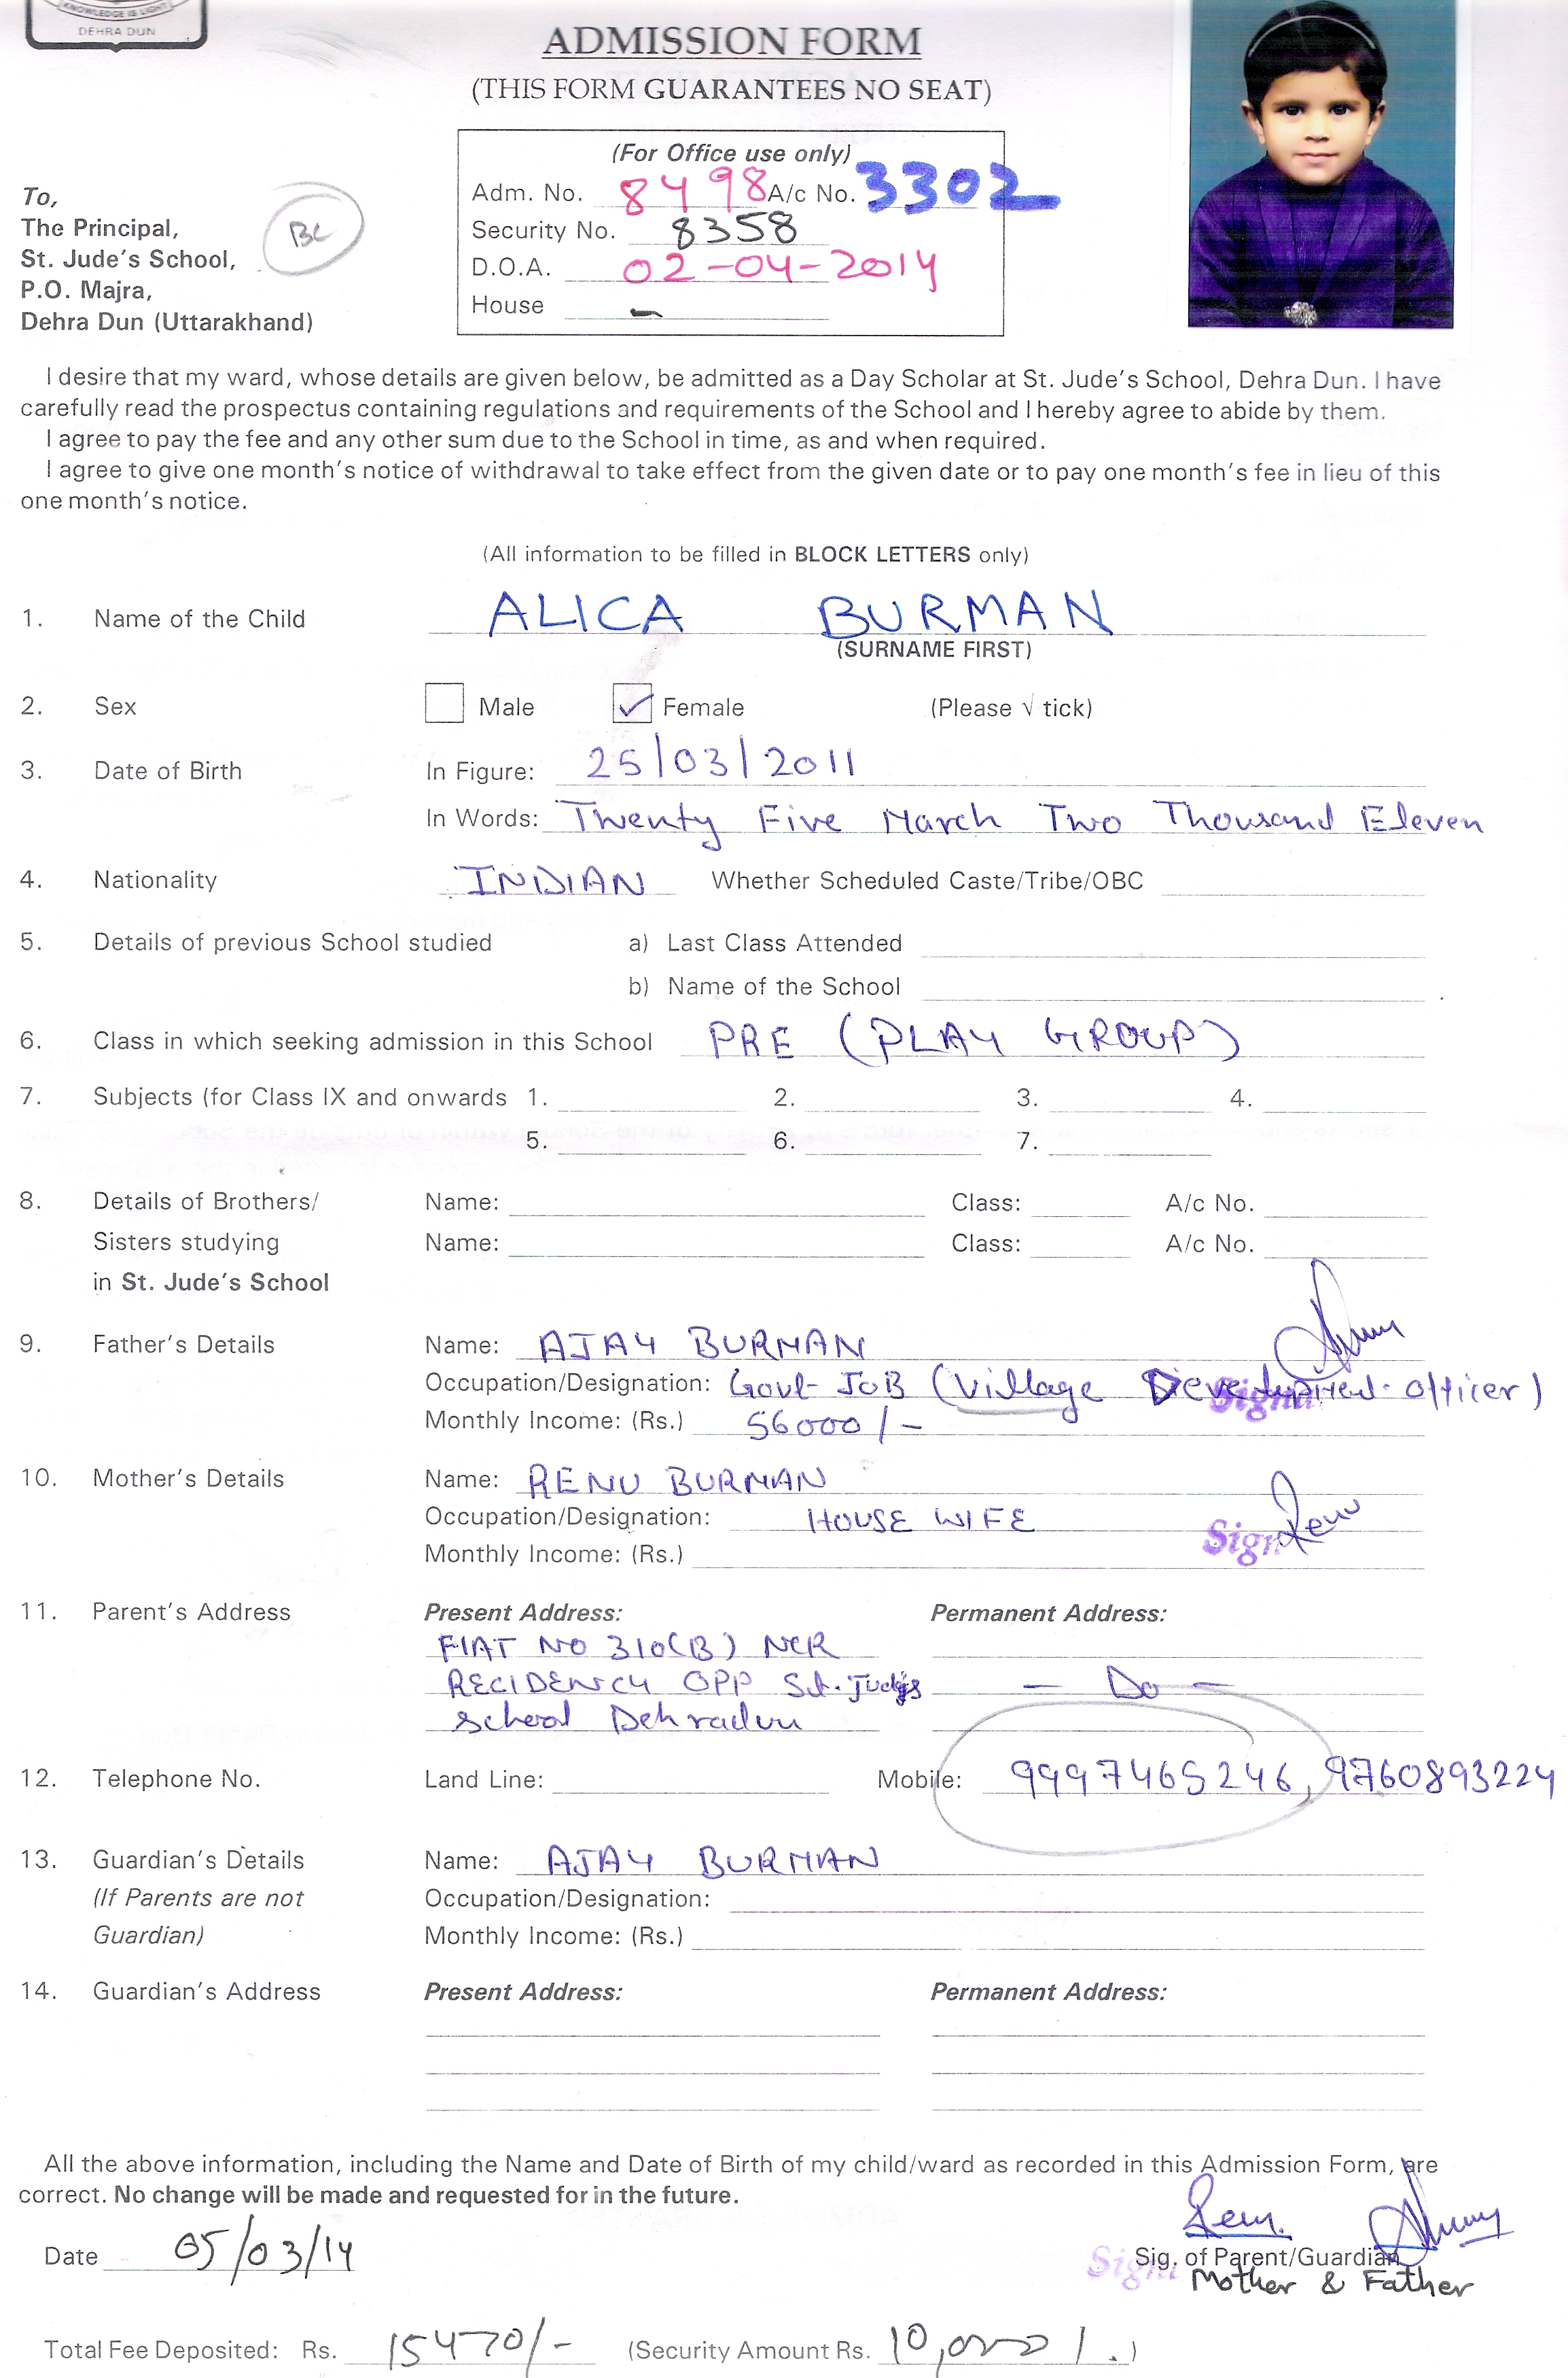 KNOWLEDGE IS LIGHT
DEHRA DUN
ADMISSION FORM
(THIS FORM GUARANTEES NO SEAT)
(For Office use only)
Adm. No. 8498 A/c No. 3302
Security No. 8358
D.O.A. 02-04-2014
House -
To,
The Principal,
St. Jude's School,
P.O. Majra,
Dehra Dun (Uttarakhand)
BC
I desire that my ward, whose details are given below, be admitted as a Day Scholar at St. Jude's School, Dehra Dun. I have
carefully read the prospectus containing regulations and requirements of the School and I hereby agree to abide by them.
I agree to pay the fee and any other sum due to the School in time, as and when required.
I agree to give one month's notice of withdrawal to take effect from the given date or to pay one month's fee in lieu of this
one month's notice.
(All information to be filled in BLOCK LETTERS only)
1. Name of the Child ALICA BURMAN
(SURNAME FIRST)
2. Sex Male ✓ Female (Please √ tick)
3. Date of Birth In Figure: 25/03/2011
In Words: Twenty Five March Two Thousand Eleven
4. Nationality INDIAN Whether Scheduled Caste/Tribe/OBC
5. Details of previous School studied a) Last Class Attended
b) Name of the School
6. Class in which seeking admission in this School PRE (PLAY GROUP)
7. Subjects (for Class IX and onwards 1. 2. 3. 4.
5. 6. 7.
8. Details of Brothers/ Name: Class: A/c No.
Sisters studying Name: Class: A/c No.
in St. Jude's School
9. Father's Details Name: AJAY BURMAN
Occupation/Designation: Govt- JOB (Village Development officer)
Monthly Income: (Rs.) 56000/-
10. Mother's Details Name: RENU BURMAN
Occupation/Designation: HOUSE WIFE
Sign Renu
Monthly Income: (Rs.)
11. Parent's Address Present Address: Permanent Address:
FlAT NO 310(B) NCR
RECIDENCY OPP St. Judes - Do -
School Dehradun
12. Telephone No. Land Line: Mobile: 9997465246, 9760893224
13. Guardian's Details Name: AJAY BURMAN
(If Parents are not Occupation/Designation:
Guardian) Monthly Income: (Rs.)
14. Guardian's Address Present Address: Permanent Address:
All the above information, including the Name and Date of Birth of my child/ward as recorded in this Admission Form, are
correct. No change will be made and requested for in the future.
Date 05/03/14 Sig. of Parent/Guardian
Mother & Father
Total Fee Deposited: Rs. 15470/- (Security Amount Rs. 10,000/.)